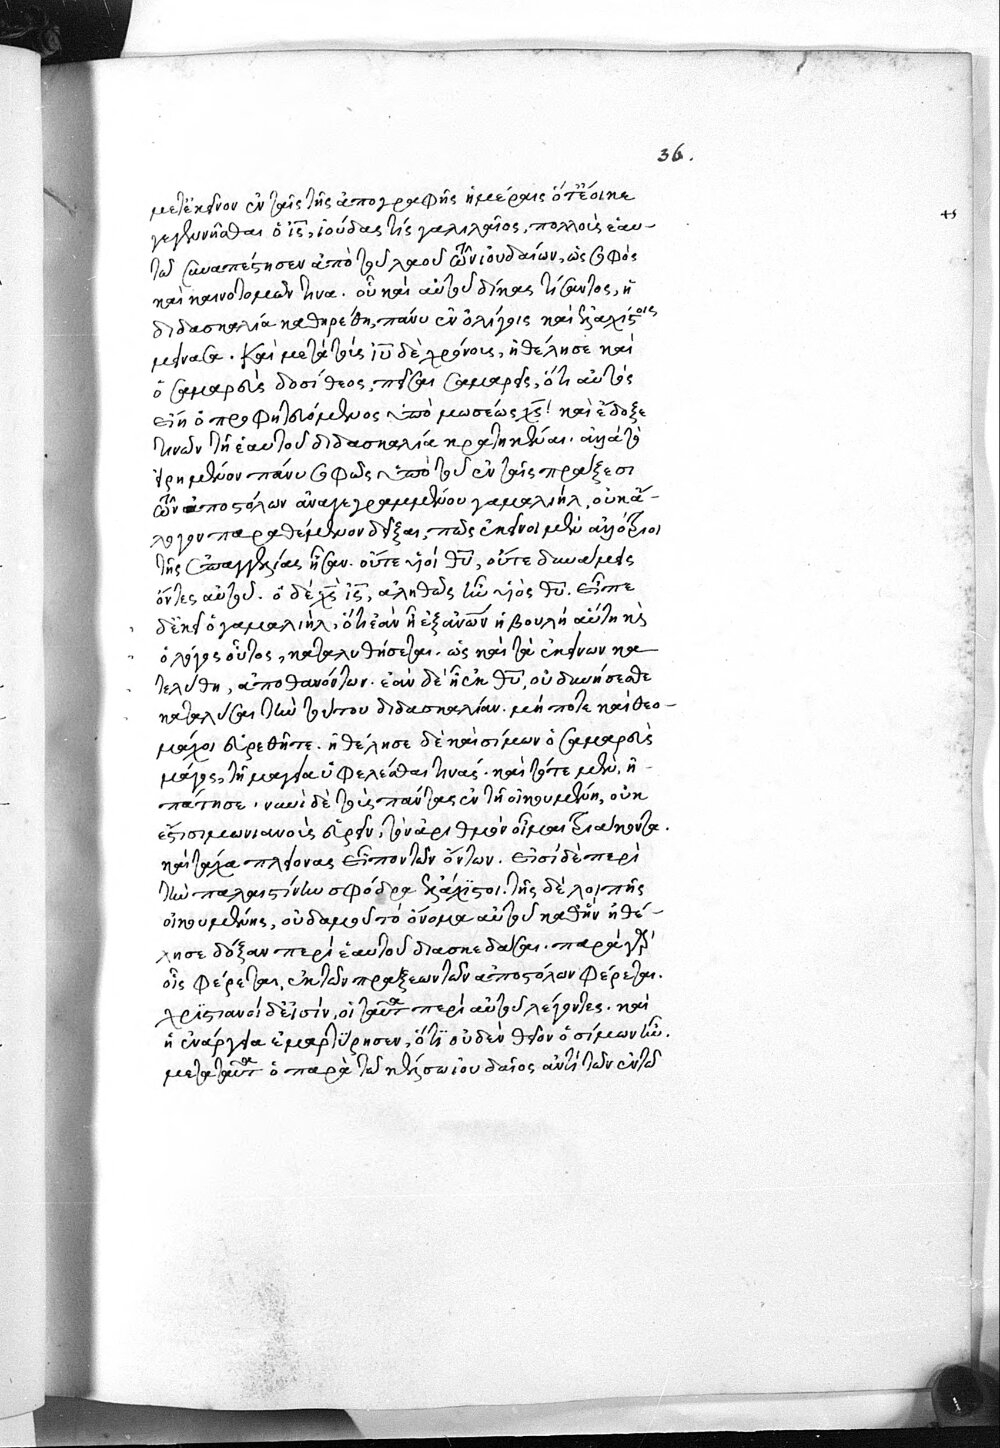 36.
45
μετ' ἐκεῖνον ἐν ταῖς τῆς ἀπογραφῆς ἡμέραις ὅτ' ἔοικε
γεγεννῆσθαι ὁ ις, ἰούδας τίς γαλιλαῖος, πολλοὺς ἑαυ-
τῶ συναπέστησεν ἀπὸ τοῦ λαοῦ τῶν ἰουδαίων, ὡς σοφός
καὶ καινοτομῶν τινα. οὗ καὶ αὐτοῦ δίκας τίσαντος, ἡ
διδασκαλία καθηρέθη, πάνυ ἐν ὀλίγοις καὶ ἐλαχίστοις
μείνασα. καὶ μετὰ τοὺς ιυ δὲ χρόνους, ἠθέλησε καὶ
ὁ σαμαρεὺς δοσίθεος, πεῖσαι σαμαρεῖς, ὅτι αὐτὸς
εἴη ὁ προφητευόμενος ὑπὸ μωσέως χς! καὶ ἔδοξε
τινῶν τῆ ἑαυτοῦ διδασκαλία κεκρατηκέναι. ἀλλὰ τὸ
εἰρημένον πάνυ σοφῶς ὑπὸ τοῦ ἐν ταῖς πράξεσι
τῶν ἀποστόλων ἀναγεγραμμένου γαμαλιὴλ, οὐκ ἄ-
λογον παραθέμενον δεῖξαι, πῶς ἐκεῖνοι μὲν ἀλλότριοι
τῆς ἐπαγγελίας ἦσαν. οὔτε υἱοί θυ, οὔτε δυνάμεις
ὄντες αὐτοῦ. ὁ δὲ χς ις, ἀληθῶς ἦν υἱὸς θυ. εἶπε
δ' ἐκεῖ ὁ γαμαλιήλ, ὅτι ἐὰν ἦ ἐξ ἀνων ἡ βουλὴ αὕτη κὶ
ὁ λόγος οὗτος, καταλυθήσεται. ὡς καὶ τὰ ἐκείνων κα
τελύθη, ἀποθανόντων. ἐὰν δὲ ἦ ἐκ θυ, οὐ δυνήσεσθε
καταλῦσαι τὴν τούτου διδασκαλίαν. μή ποτε καὶ θεο-
μάχοι εὑρεθῆτε. ἠθέλησε δὲ καὶ σίμων ὁ σαμαρεὺς
μάγος, τῆ μαγεία ὑφελέσθαι τινάς. καὶ τότε μὲν, ἠ-
πάτησε. νυνὶ δὲ τοὺς πάντας ἐν τῆ οἰκουμένη, οὐκ
ἔστι σιμωνιανοὺς εὑρεῖν, τὸν ἀριθμὸν οἶμαι τριάκοντα.
καὶ τάχα πλείονας εἶπον τῶν ὄντων. εἰσὶ δὲ περὶ
τὴν παλαιστίνην σφόδρα ἐλάχιστοι. τῆς δὲ λοιπῆς
οἰκουμένης, οὐδαμοῦ τὸ ὄνομα αὐτοῦ καθ' ἣν ἠθέ-
λησε δόξαν περὶ ἑαυτοῦ διασκεδάσαι. παρ' οἷς γὰρ
οἷς φέρεται, ἐκ τῶν πράξεων τῶν ἀποστόλων φέρεται.
χριστιανοί δ' εἰσίν, οἱ ταῦτα περὶ αὐτοῦ λέγοντες. καὶ
ἡ ἐνάργεια ἐμαρτύρησεν, ὅτι οὐδὲν θεῖον ὁ σίμων ἦν.
μετὰ ταῦτα ὁ παρὰ τῶ κέλσω ἰουδαῖος ἀντὶ τῶν ἐν τῶ